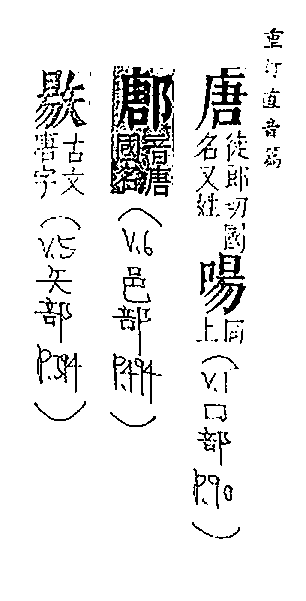 重訂直音篇
唐 徒郎切國名又姓 啺 同上 (V.1 口部 P.90)
鄌 音唐國名 (V.6 邑部 P.494)
古文唐字 (V.5 矢部 P.394)